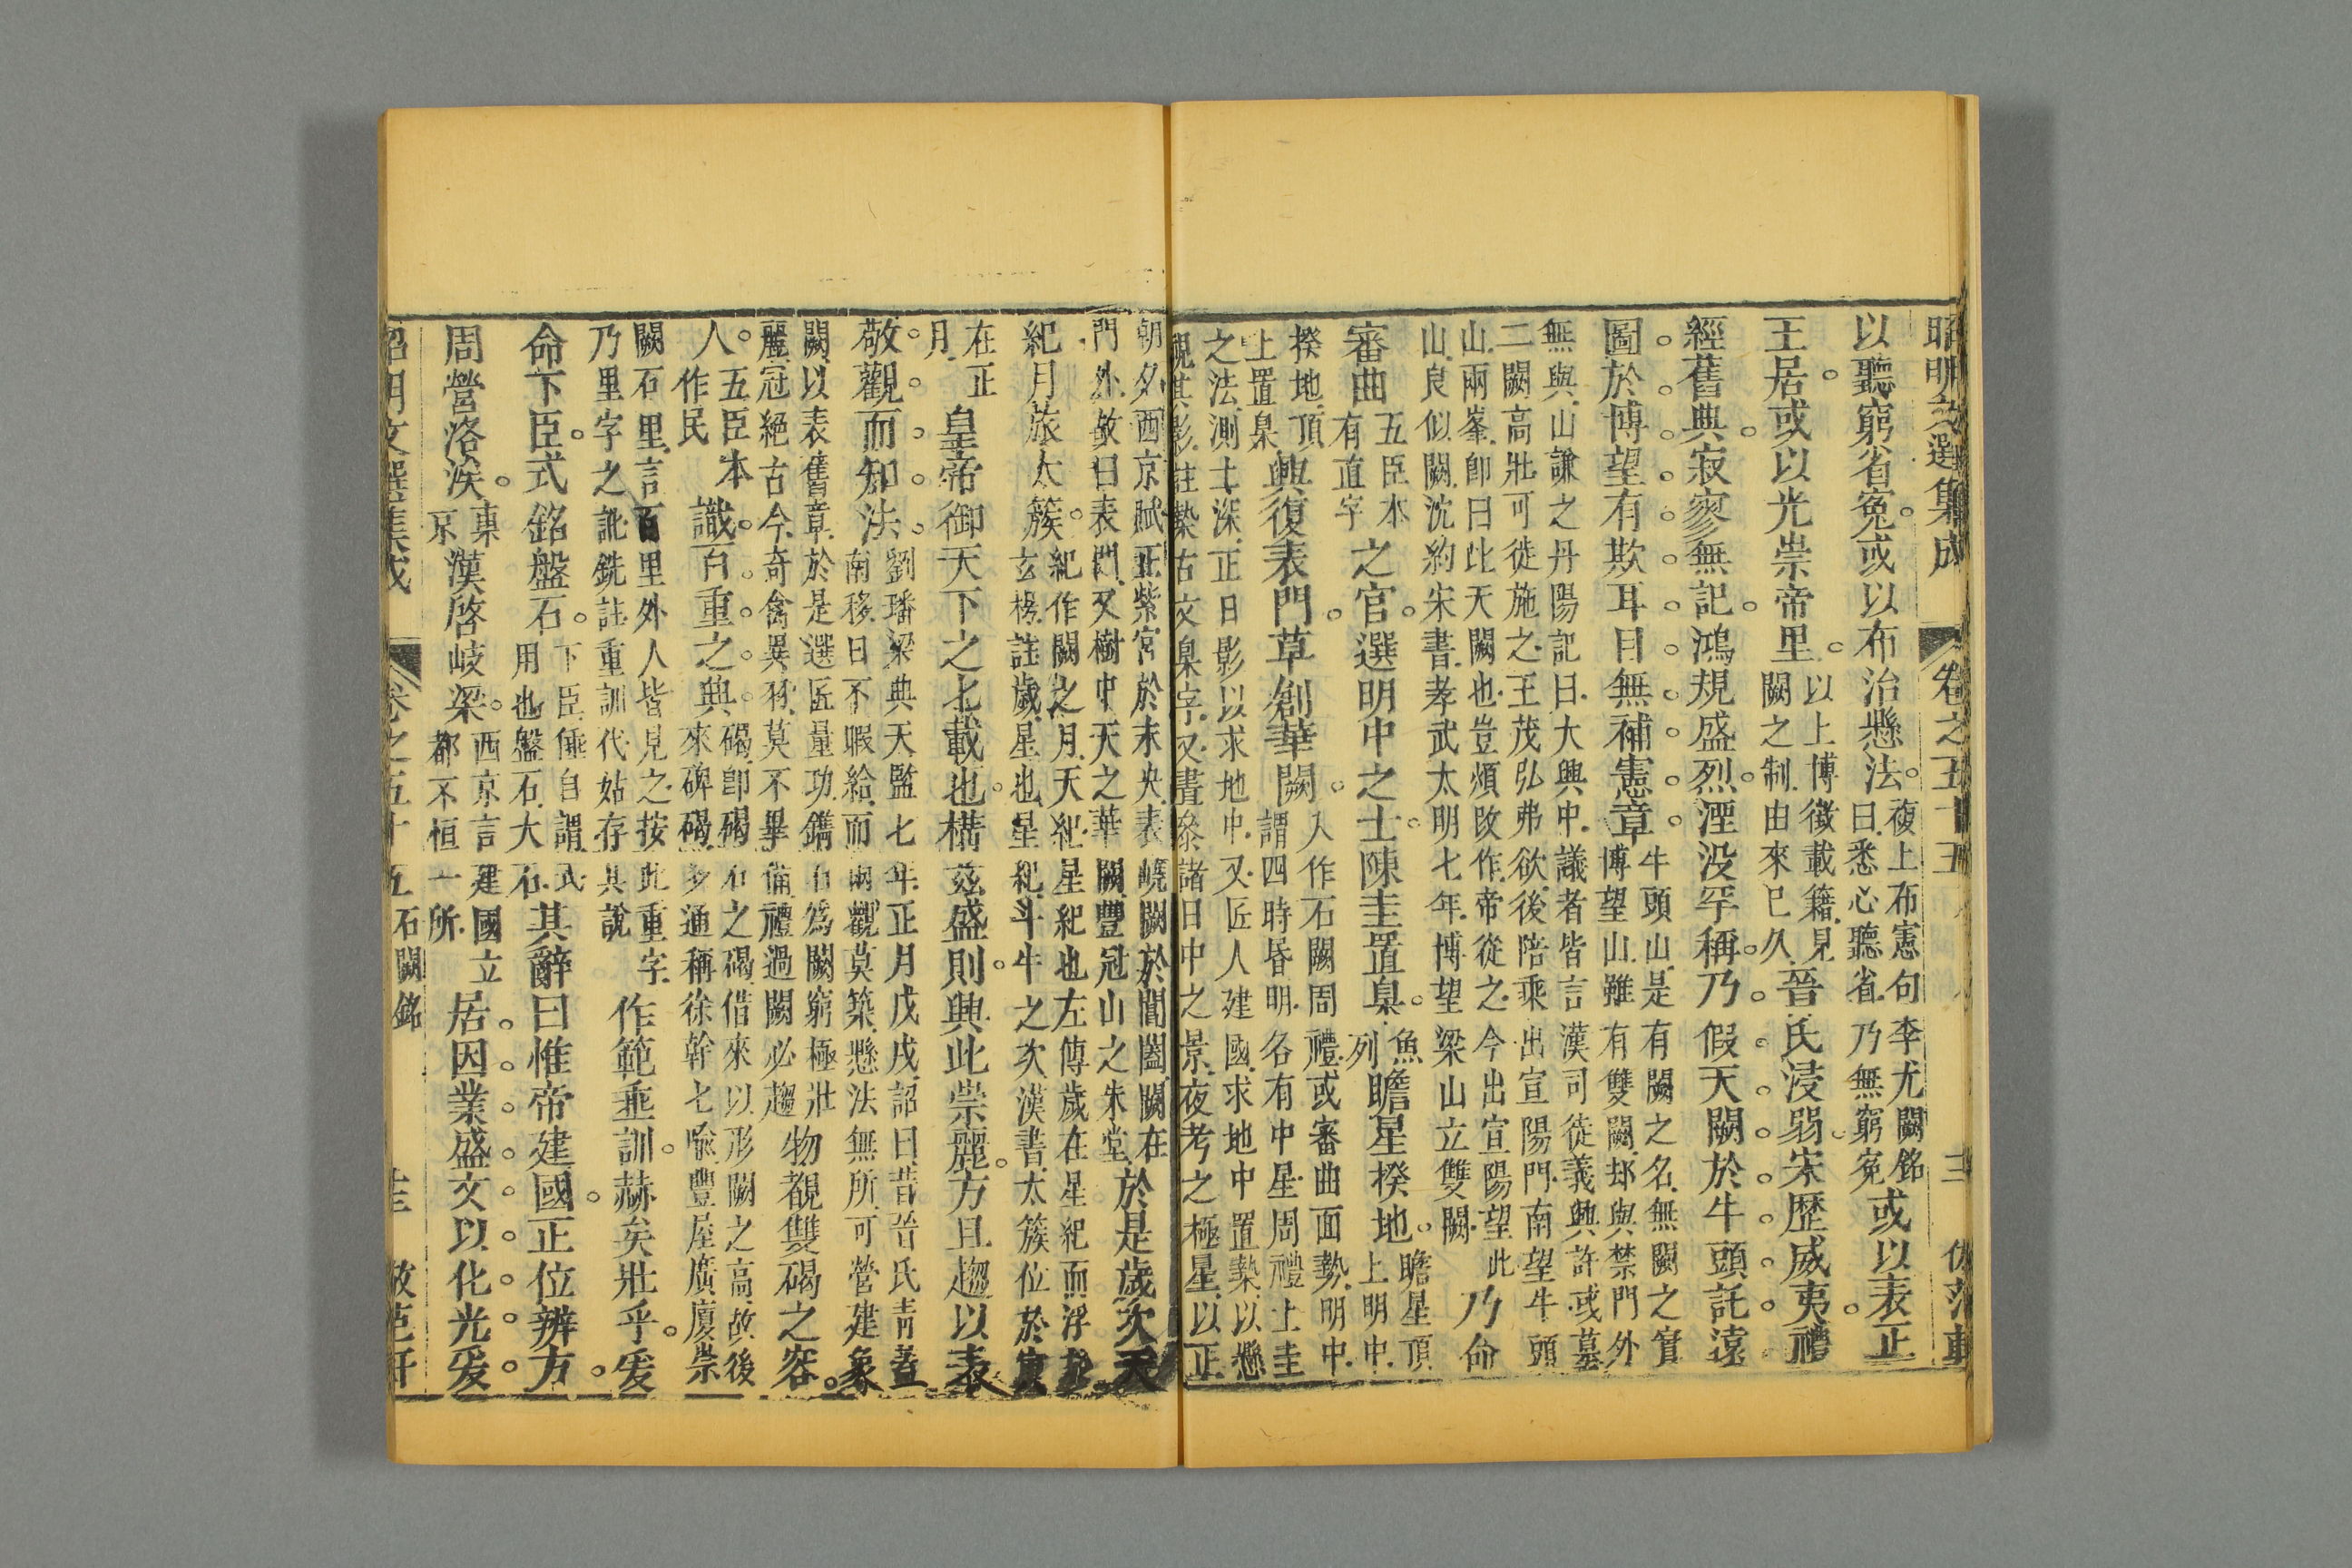 昭明文選集成 卷之五十五 三
以聽窮省冤或以布治懸法複上布憲句李尤闕銘
曰悉心聽省乃無窮冤或以表正
王居或以光崇帝里以上博徵載籍見
闕之制由來已久晉氏浸弱宋歷威夷禮
經舊典寂寥無記鴻規盛烈湮没罕稱乃假天闕於牛頭託遠
圖於博望有欺耳目無補憲章牛頭山是有闕之名無闕之實
博望山雖有雙闕却與禁門外
無與山謙之丹陽記曰大興中議者皆言漢司徒義興許彧墓
二闕高壯可徙施之王茂弘弗欲後陪乘出宣陽門南望牛頭
山兩峯卽曰此天闕也豈煩改作帝從之今出宣陽望此
山良似闕沈約宋書孝武太明七年博望梁山立雙闕
乃命
審曲五臣本
有直字之官選明中之士陳圭置臬魚
列瞻星揆地瞻星頂
上明中
揆地頂
上置臬興復表門草創華闕人作石闕周禮或審曲面勢明中
謂四時昏明各有中星周禮上圭
之法測土深正日影以求地中又匠人建國求地中置槷以懸
視其影註槷古文臬字又晝參諸日中之景夜考之極星以正
朝夕西京賦正紫宮於未央表嶢闕於閶闔闕在
門外故曰表門又樹中天之華闕豐冠山之朱堂於是歲次天
紀月旅太簇紀作闕之月天紀星紀也左傳歲在星紀而浮於
玄枵註歲星也星紀斗牛之次漢書太簇位於寅
在正
月皇帝御天下之七載也構茲盛則興此崇麗方且趨以表
敬觀而知法劉璠梁典天監七年正月戊戌詔曰昔晉氏青蓋
南移日不暇給而兩觀莫築懸法無所可營建象
闕以表舊章於是選匠量功鐫石爲闕窮極壯
麗冠絕古今奇禽異羽莫不畢備禮過闕必趨物覩雙碣之容
人五臣本
作民識百重之典碣卽碣石之碣借來以形闕之高故後
來碑碣多通稱徐幹七喻豐屋廣廈崇
闕石里言百里外人皆見之按此重字
乃里字之訛銑註重訓代姑存其說作範垂訓赫矣壯乎爰
命下臣式銘盤石下臣倕自謂式
用也盤石大石其辭曰惟帝建國正位辨方
周營洛涘東
京漢啓岐梁西京言建國立
都不恒一所居因業盛文以化光爰
昭明文選集成 卷之五十五 石闕銘